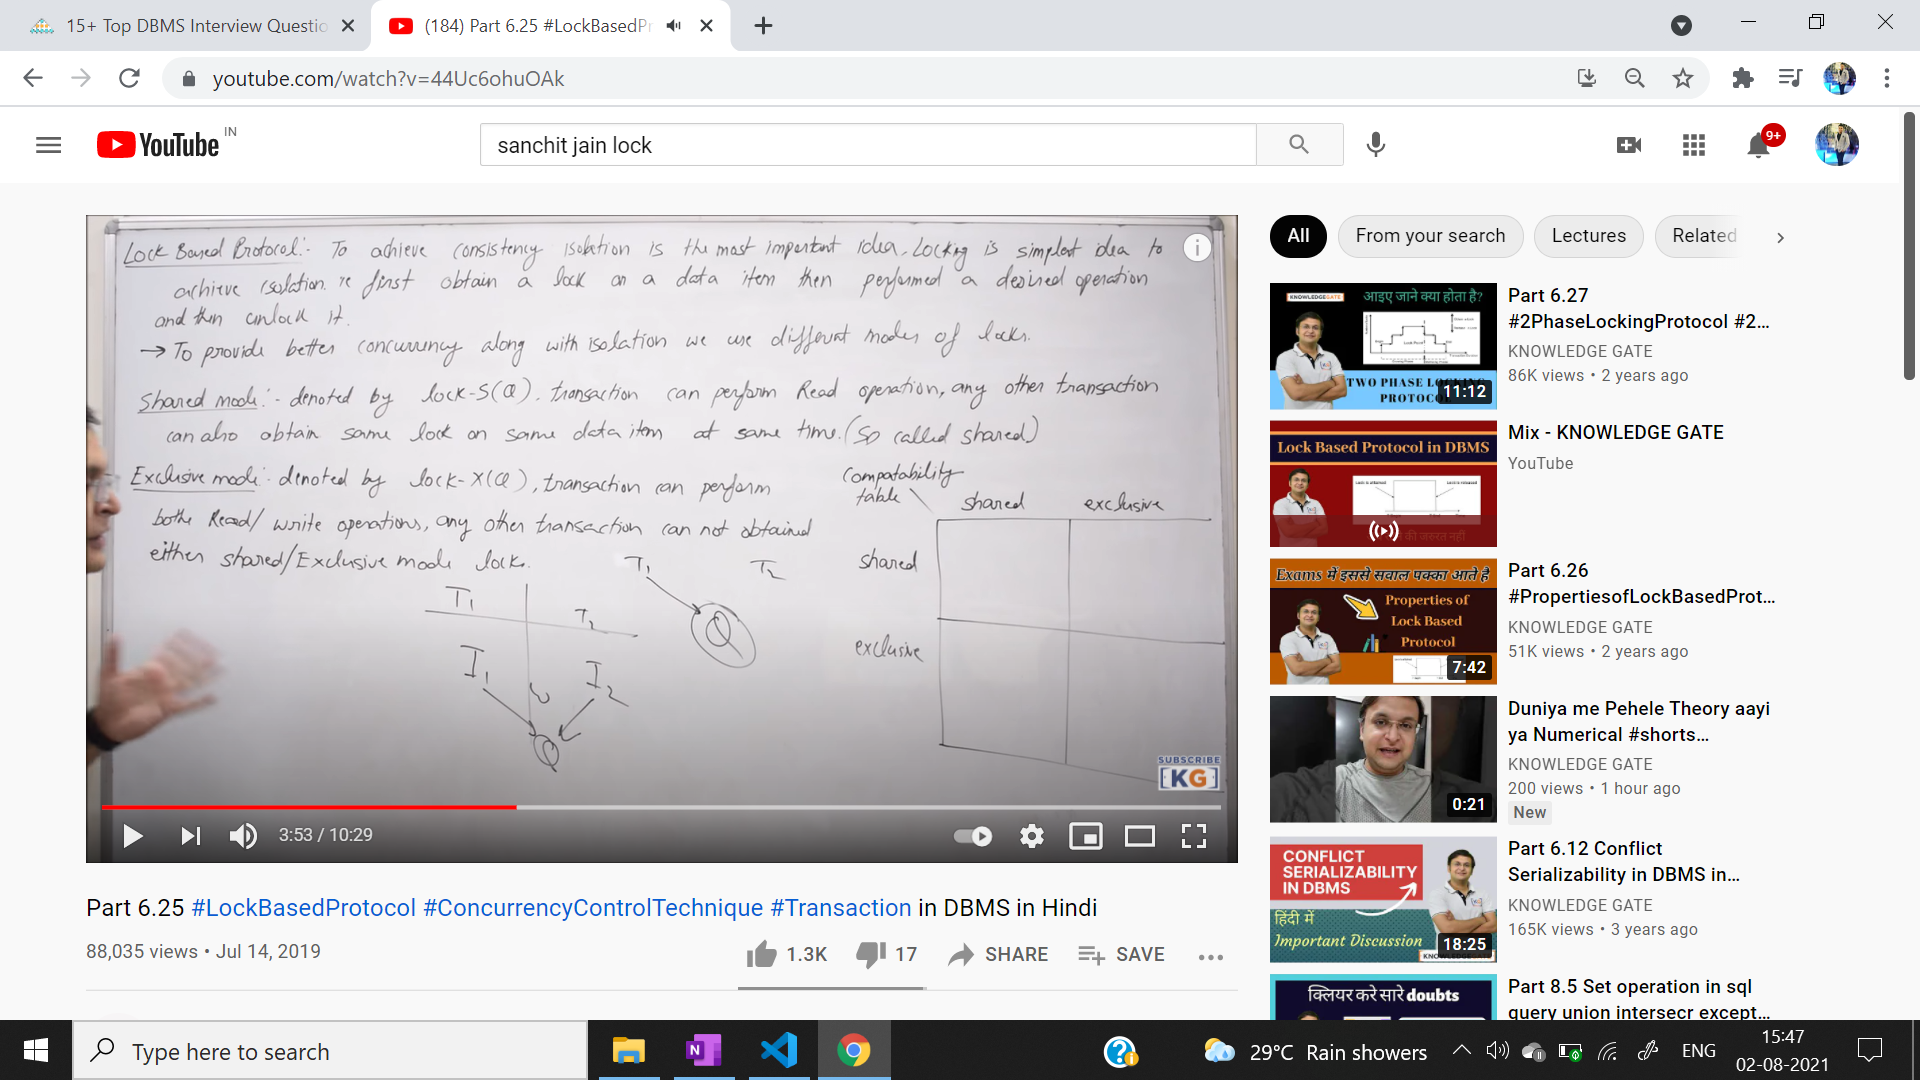 15+ Top DBMS Interview Questio
(184) Part 6.25 #LockBasedPr
youtube.com/watch?v=44Uc6ohuOAk
YouTube IN
sanchit jain lock
9+
Lock Based Protocol:- To achieve consistency isolation is the most important idea, Locking is simplest idea to
achieve isolation. ie first obtain a lock on a data item then performed a desired operation
and then unlock it.
→ To provide better concurrency along with isolation we use different modes of locks.
Shared mode:- denoted by lock-S(Q), transaction can perform Read operation, any other transaction
can also obtain same lock on same data item at same time. (So called shared)
Exclusive mode:- denoted by lock-X(Q), transaction can perform
both Read/write operations, any other transaction can not obtained
either shared/Exclusive mode lock.
Compatability
table
shared exclusive
shared
exclusive
T1 T2
Q
T1 T2
I1 W I2
Q
SUBSCRIBE
[KG]
3:53 / 10:29
Part 6.25 #LockBasedProtocol #ConcurrencyControlTechnique #Transaction in DBMS in Hindi
88,035 views • Jul 14, 2019
1.3K 17 SHARE SAVE
All From your search Lectures Related
KNOWLEDGEGATE
आइए जाने क्या होता है?
TWO PHASE LOCKING
PROTOCOL
11:12
Part 6.27
#2PhaseLockingProtocol #2...
KNOWLEDGE GATE
86K views • 2 years ago
Lock Based Protocol in DBMS
Mix - KNOWLEDGE GATE
YouTube
Exams में इससे सवाल पक्का आते है
Properties of
Lock Based
Protocol
7:42
Part 6.26
#PropertiesofLockBasedProt...
KNOWLEDGE GATE
51K views • 2 years ago
0:21
Duniya me Pehele Theory aayi
ya Numerical #shorts...
KNOWLEDGE GATE
200 views • 1 hour ago
New
CONFLICT
SERIALIZABILITY
IN DBMS
हिंदी में
Important Discussion
18:25
Part 6.12 Conflict
Serializability in DBMS in...
KNOWLEDGE GATE
165K views • 3 years ago
क्लियर करे सारे doubts
Part 8.5 Set operation in sql
query union intersecr except...
Type here to search
29°C Rain showers
ENG
15:47
02-08-2021